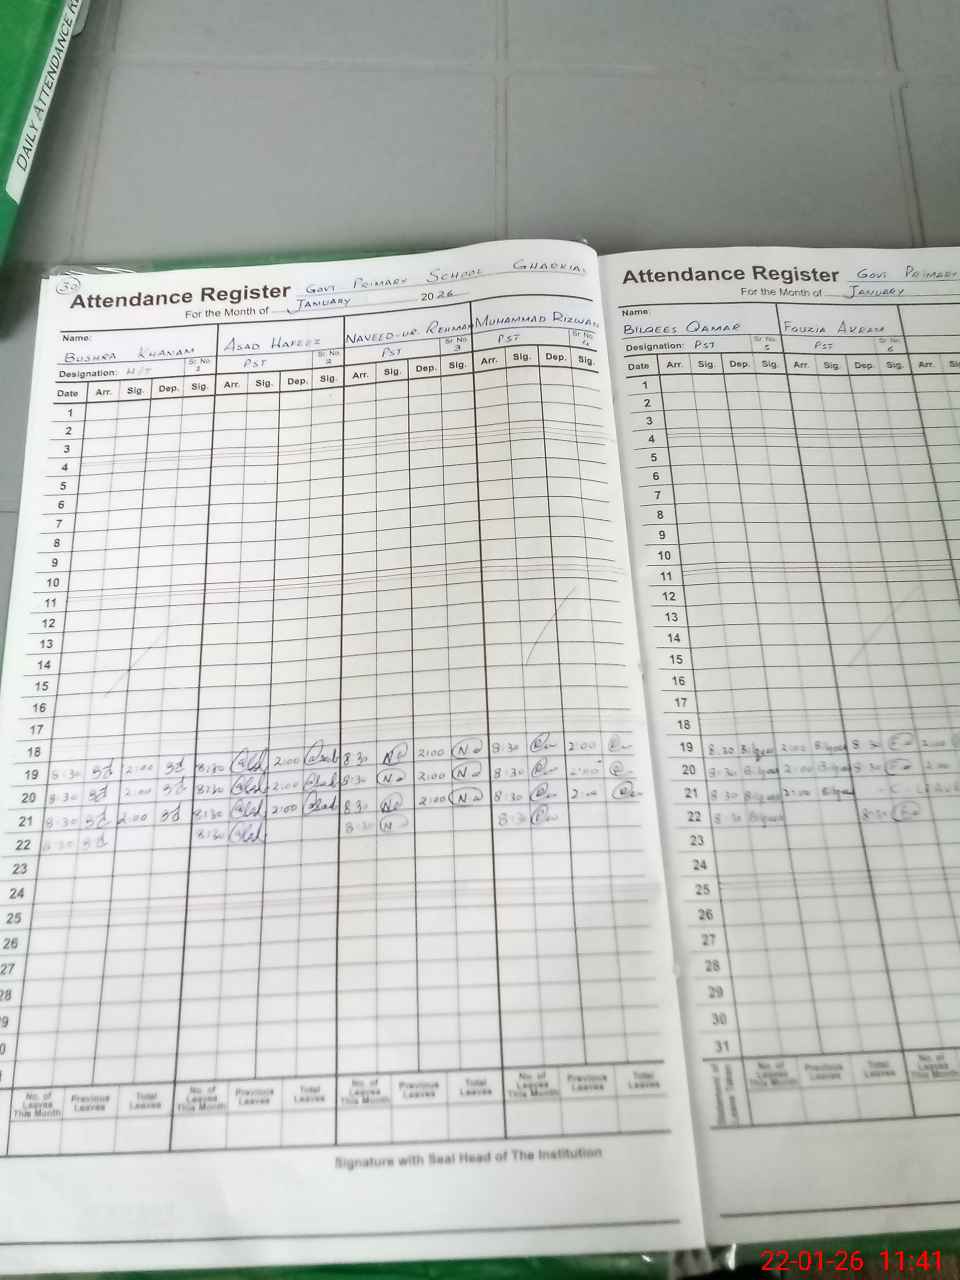 DAILY ATTENDANCE
30
Attendance Register GOVT PRIMARY SCHOOL GHARKIAL
For the Month of JANUARY 2026
Name:
BUSHRA KHANAM ASAD HAFEEZ NAVEED-UR-REHMAN MUHAMMAD RIZWAN
Designation: H/T Sr. No. 1 PST Sr. No. 2 PST Sr. No. 3 PST Sr. No. 4
Date Arr. Sig. Dep. Sig. Arr. Sig. Dep. Sig. Arr. Sig. Dep. Sig. Arr. Sig. Dep. Sig.
1
2
3
4
5
6
7
8
9
10
11
12
13
14
15
16
17
18
19 8:30 2:00 8:30 2:00 8:30 2:00 8:30 2:00
20 8:30 2:00 8:30 2:00 8:30 2:00 8:30 2:00
21 8:30 2:00 8:30 2:00 8:30 2:00 8:30 2:00
22 8:30 8:30 8:30 8:30
23
24
25
26
27
28
9
0
No. of Leaves This Month Previous Leaves Total Leaves No. of Leaves This Month Previous Leaves Total Leaves No. of Leaves This Month Previous Leaves Total Leaves No. of Leaves This Month Previous Leaves Total Leaves
Signature with Seal Head of The Institution
Attendance Register GOVT PRIMARY
For the Month of JANUARY
Name:
BILQEES QAMAR FOUZIA AKRAM
Designation: PST Sr. No. 5 PST Sr. No. 6
Date Arr. Sig. Dep. Sig. Arr. Sig. Dep. Sig. Arr.
1
2
3
4
5
6
7
8
9
10
11
12
13
14
15
16
17
18
19 8:30 Bilqees 2:00 Bilqees 8:30 2:00
20 8:30 Bilqees 2:00 Bilqees 8:30 2:00
21 8:30 Bilqees 2:00 Bilqees - C. LEAVE
22 8:30 Bilqees 8:30
23
24
25
26
27
28
29
30
31
No. of Leaves This Month Previous Leaves Total Leaves No. of Leaves This Month
22-01-26 11:41